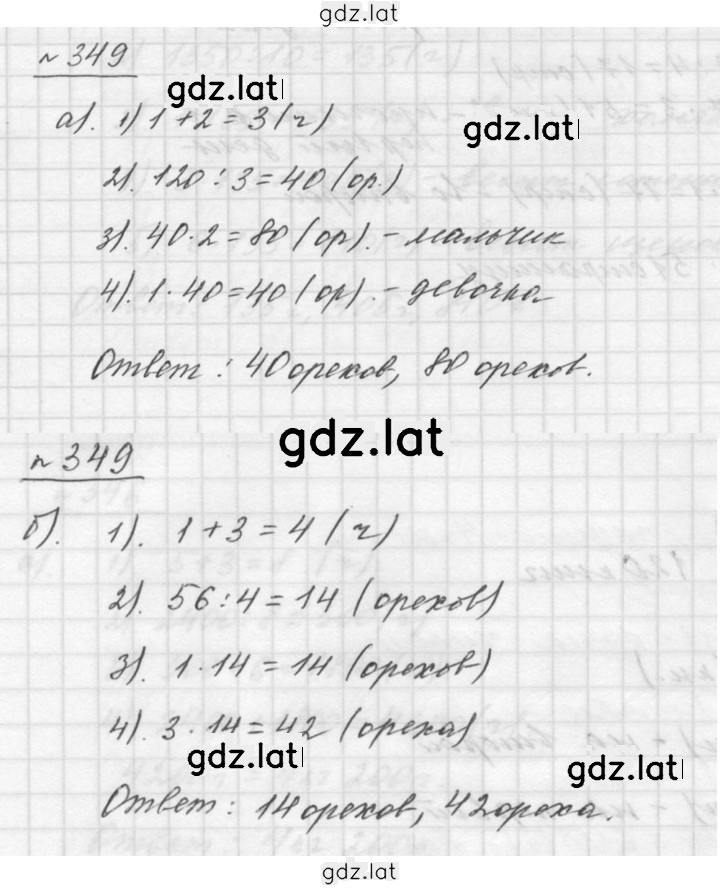 gdz.lat
№ 349
gdz.lat
а). 1) 1+2=3 (ч)
gdz.lat
2). 120:3=40 (ор.)
3). 40·2=80 (ор). - мальчик
4). 1·40=40 (ор). - девочка
Ответ: 40 орехов, 80 орехов.
gdz.lat
№ 349
б). 1). 1+3=4 (ч)
2). 56:4=14 (орехов)
3). 1·14=14 (орехов)
4). 3·14=42 (ореха)
gdz.lat
gdz.lat
Ответ: 14 орехов, 42 ореха.
gdz.lat